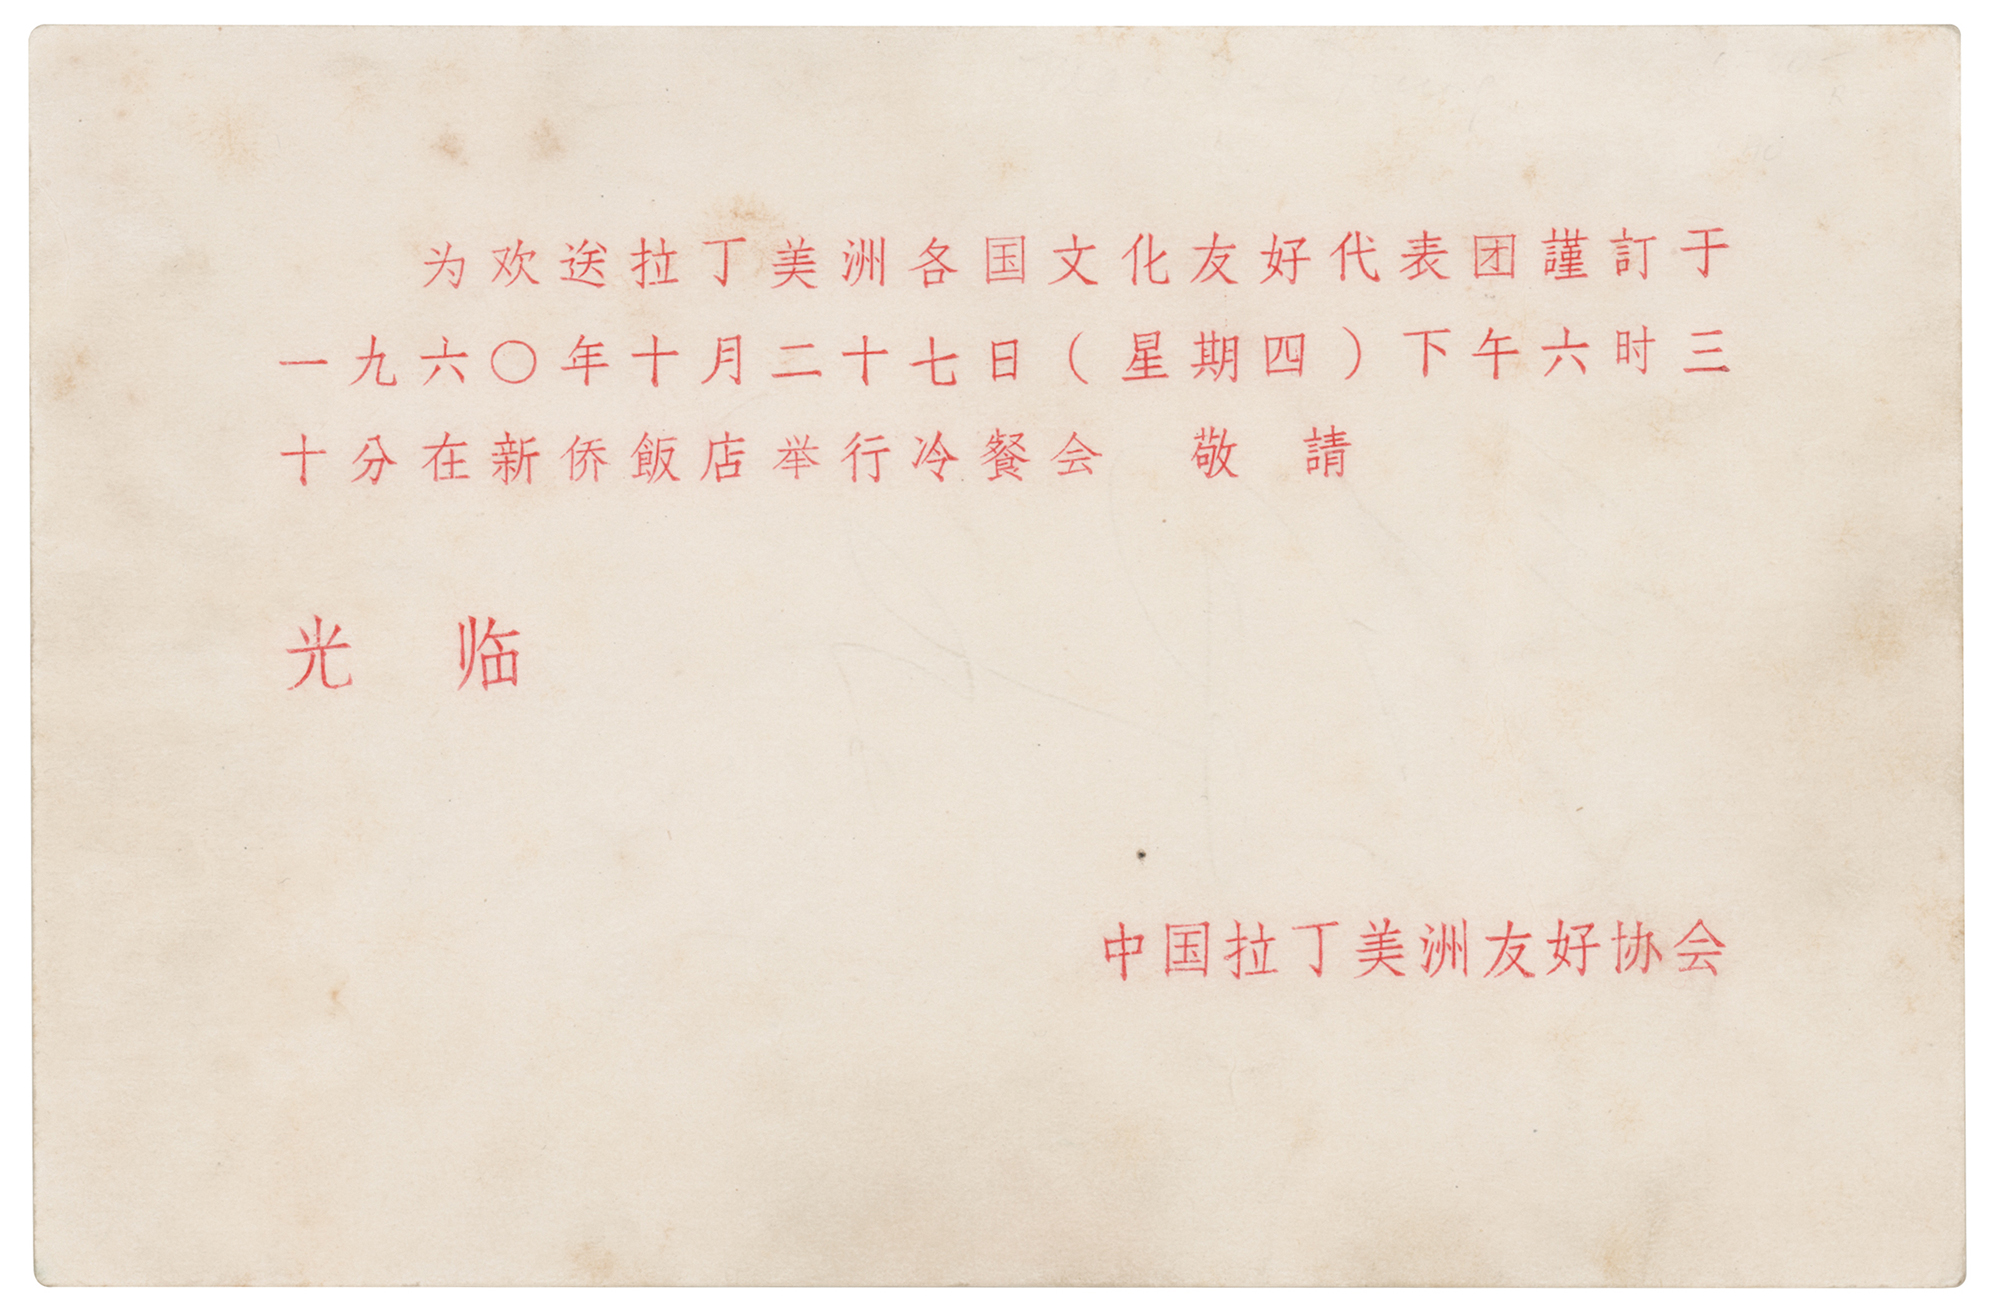 为欢送拉丁美洲各国文化友好代表团謹訂于
一九六〇年十月二十七日(星期四)下午六时三
十分在新侨飯店举行冷餐会 敬 請
光 临
中国拉丁美洲友好协会